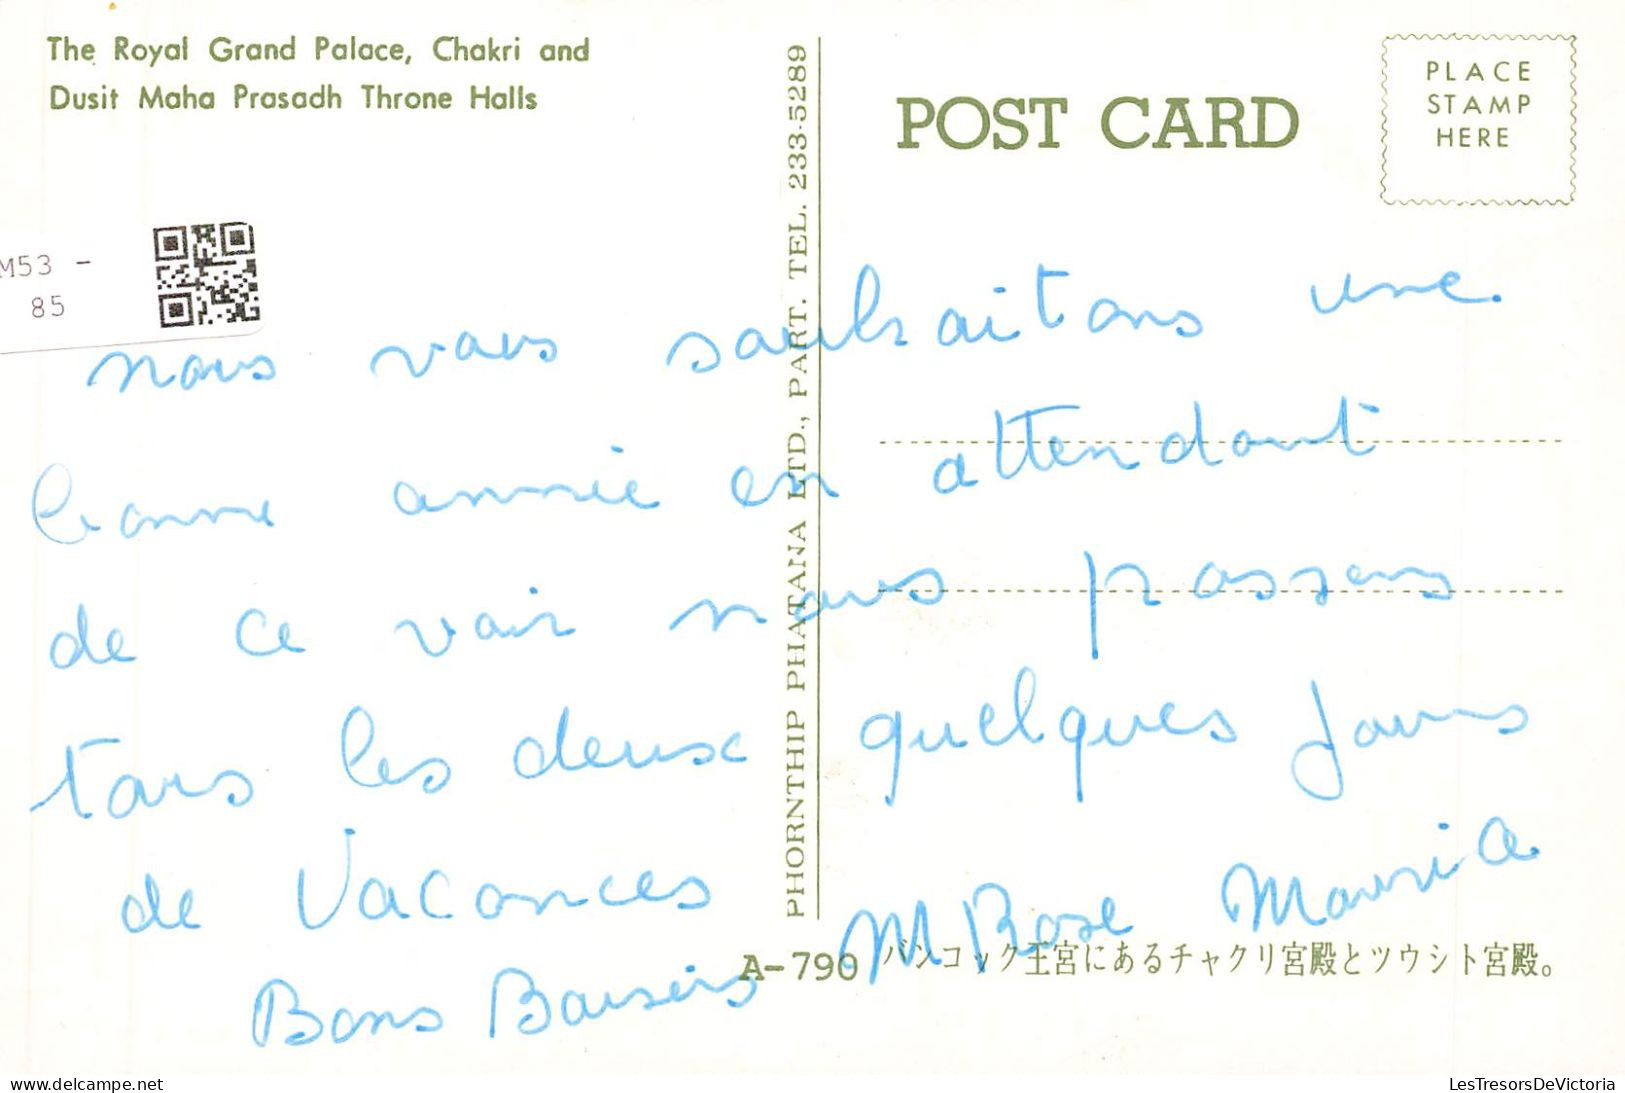 The Royal Grand Palace, Chakri and
Dusit Maha Prasadh Throne Halls
POST CARD
PLACE
STAMP
HERE
M53 -
85
PHORNTHIP PHATANA LTD., PART. TEL. 233-5289
nous vous souhaitons une
bonne année en attendant
de ce voir nous passons
tous les deux quelques jours
de Vacances
Bons Baisers M Rose Maurice
A-790 バンコック王宮にあるチャクリ宮殿とツウシト宮殿。
delcampe.net
LesTresorsDeVictoria